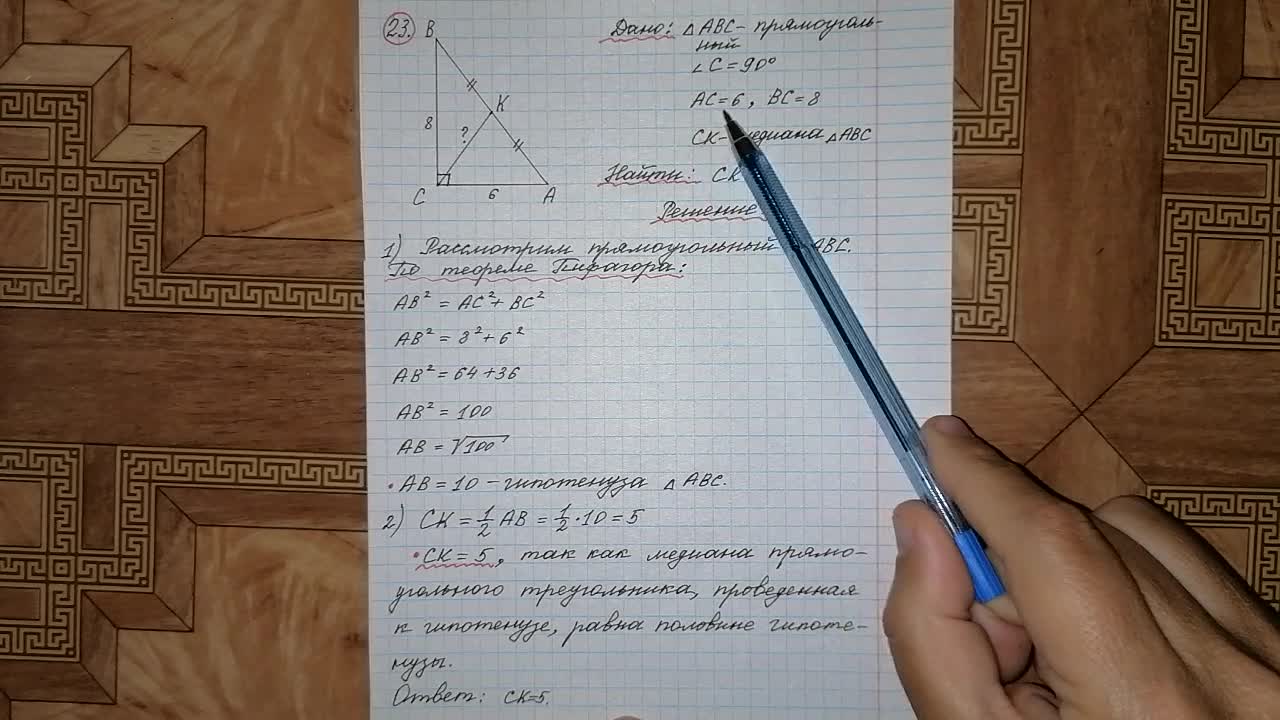 23.
B
K
8
?
C
6
A
Дано: △ABC – прямоуголь-
ный
∠C = 90°
AC = 6, BC = 8
CK – медиана △ABC
Найти: CK
Решение
1) Рассмотрим прямоугольный ABC.
По теореме Пифагора:
AB² = AC² + BC²
AB² = 8² + 6²
AB² = 64 + 36
AB² = 100
AB = √100
• AB = 10 – гипотенуза △ABC.
2) CK = 1/2 AB = 1/2 · 10 = 5
• CK = 5, так как медиана прямо-
угольного треугольника, проведенная
к гипотенузе, равна половине гипоте-
нузы.
Ответ: CK = 5.